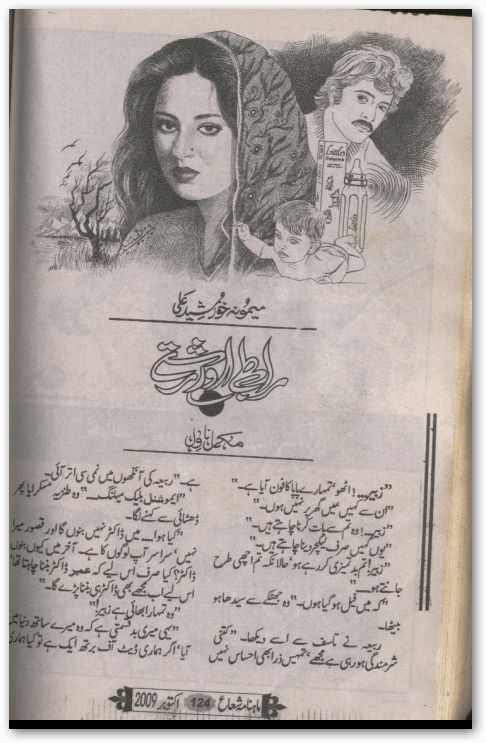 میمونہ خورشید علی
رابطے اور رشتے
مکمل ناول
”زبیر...! اٹھو، تمہارے پاپا کا فون آیا ہے۔“
”ان سے کہیں میں گھر پر نہیں ہوں۔“
”زبیر...! وہ تم سے بات کرنا چاہتے ہیں۔“
”نہیں صرف لیکچر دینا چاہتے ہیں۔“
”زبیر! تم بدتمیزی کر رہے ہو، حالانکہ تم اچھی طرح
جانتے ہو۔۔۔“
”کہ میں فیل ہو گیا ہوں۔“ وہ جھٹکے سے سیدھا ہو
بیٹھا۔
ربیعہ نے تاسف سے اسے دیکھا۔ ”کتنی
شرمندگی ہو رہی ہے مجھے، تمہیں ذرا بھی احساس نہیں
ہے۔“ ربیعہ کی آنکھوں میں نمی سی اتر آئی۔
”ایموشنل بلیک میلنگ۔۔۔“ وہ طنزیہ مسکرایا پھر
ڈھٹائی سے کہنے لگا۔
”کیا ہوا... میں ڈاکٹر نہیں بنوں گا اور قصور میرا
نہیں، سراسر آپ لوگوں کا ہے۔ آخر میں کیوں بنوں
ڈاکٹر؟ کیا صرف اس لیے کہ عمیر ڈاکٹر بننا چاہتا تھا،
اس لیے اب مجھے بھی ڈاکٹر ہی بننا پڑے گا۔“
”وہ تمہارا بھائی ہے زبیر!“
”یہی میری بدقسمتی ہے کہ وہ میرے ساتھ دنیا میں
آیا، اگر ہماری ڈیٹ آف برتھ ایک ہے تو کیا ہماری
ماہنامہ شعاع 124 اکتوبر 2009